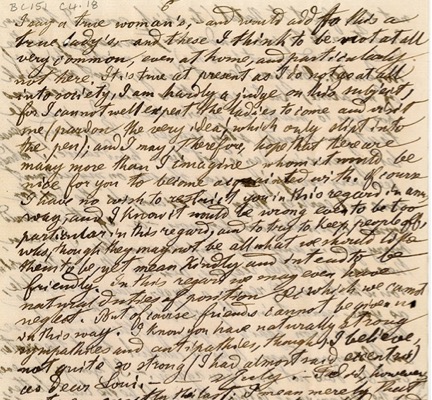 BC151 C4.18
6
I say a true woman's, - and would add to this a
true lady's - and these I think to be not at all
very common, even at home, and particularly
not here. It is true at present as I do not go at all
into society, I am hardly a judge on this subject,
for I cannot well expect the ladies to come and visit
me (pardon the very idea, which only slipt into
the pen); and I may, therefore, hope that there are
many more than I imagine whom it would be
nice for you to become acquainted with. Of course
I have no wish to restrict you in this regard in any
way, and I know it would be wrong even to be too
particular in this regard, and to try to keep people off,
who, though they may not be all what we should like
them to be, yet mean kindly and intend to be
friendly. In this regard we may even have
natural duties of position which we cannot
neglect. But of course friends cannot be given us
in this way. I know you have naturally strong
sympathies and antipathies, though, I believe,
not quite so strong (I had almost said
as Dear Loui - however,
the last: I mean merely that